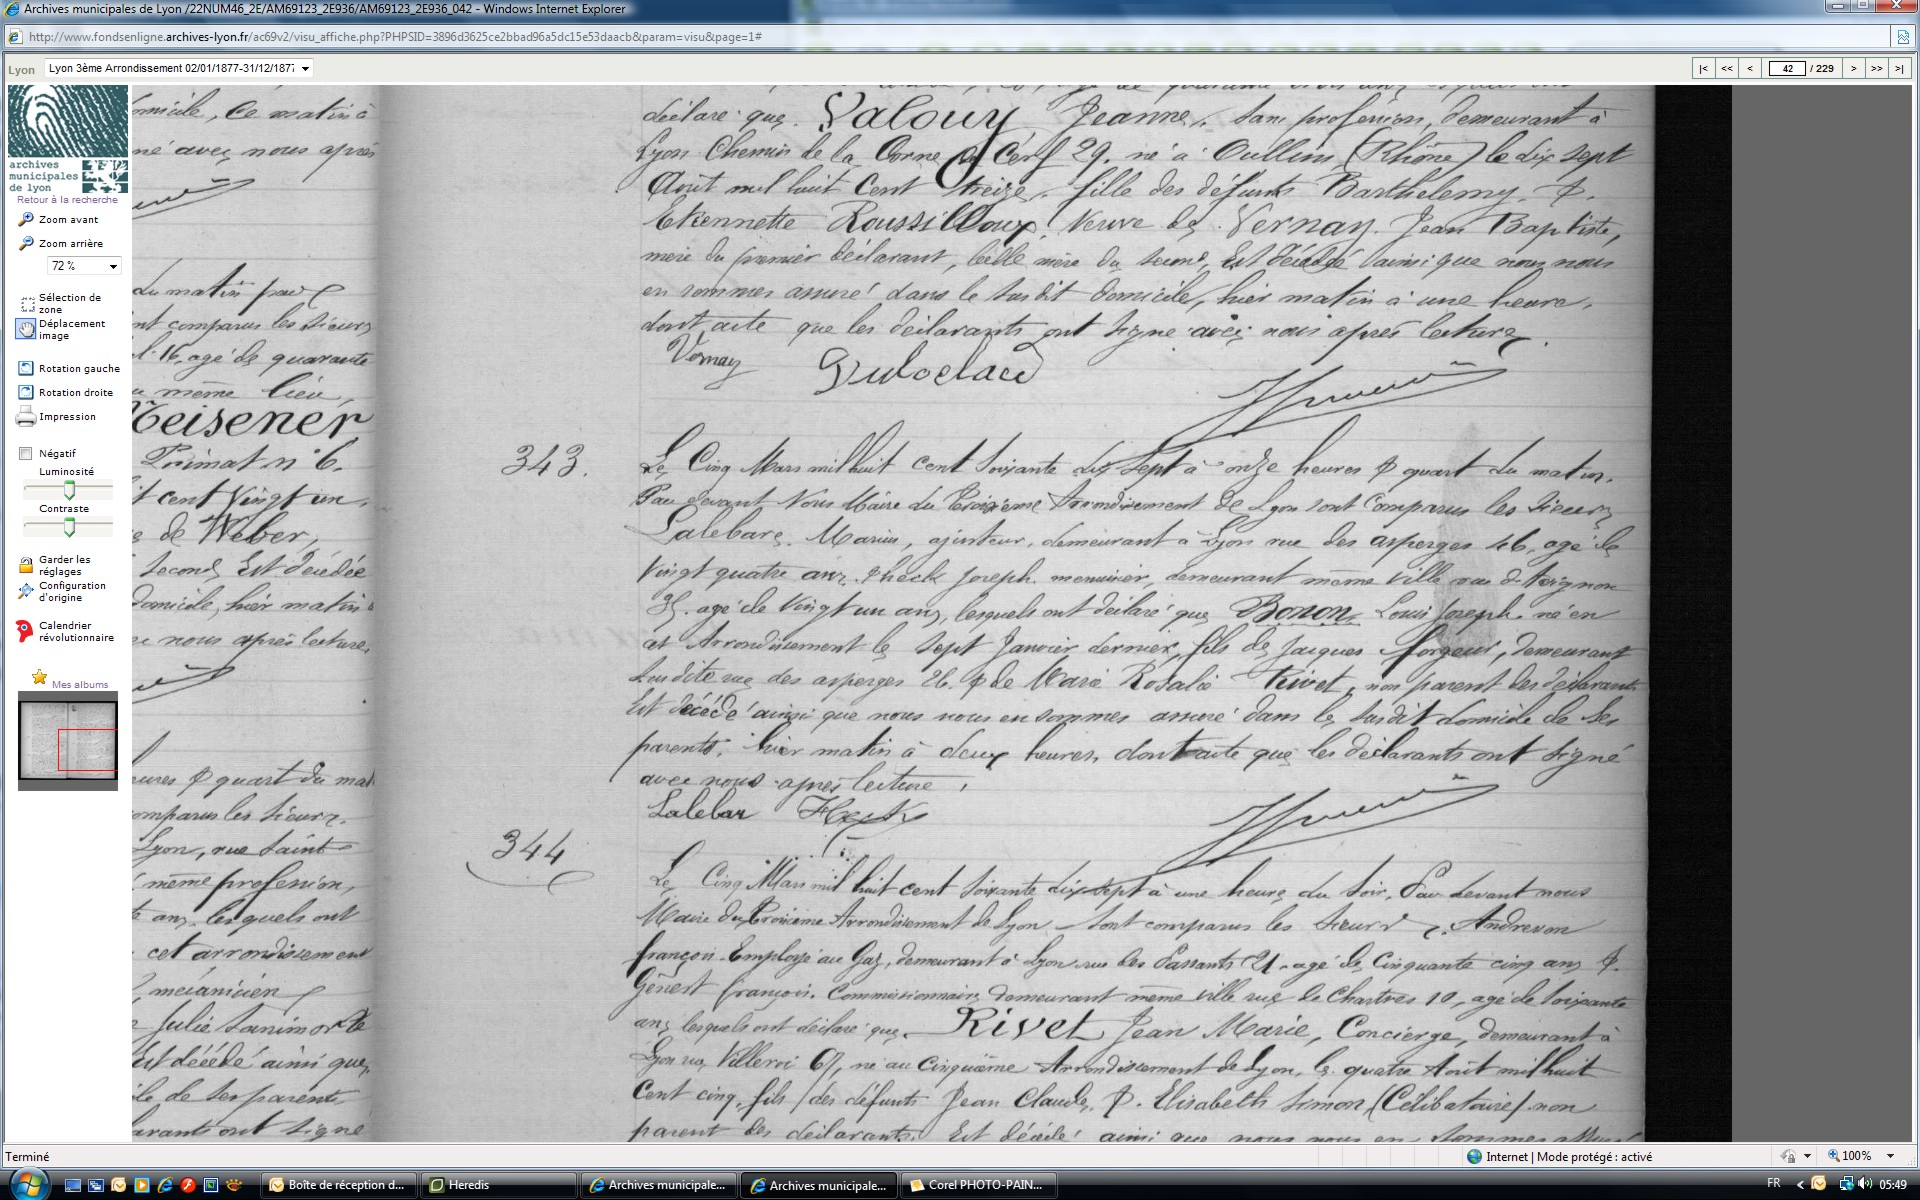 Archives municipales de Lyon /22NUM46_2E/AM69123_2E936/AM69123_2E936_042 - Windows Internet Explorer
http://www.fondsenligne.archives-lyon.fr/ac69v2/visu_affiche.php?PHPSID=3896d3625ce2bbad96a5dc15e53daacb&param=visu&page=1#
Lyon
Lyon 3ème Arrondissement 02/01/1877-31/12/1877
|< << < 42 / 229 > >> >|
archives
municipales
de lyon
Retour à la recherche
Zoom avant
Zoom arrière
72 %
Sélection de
zone
Déplacement
image
Rotation gauche
Rotation droite
Impression
Négatif
Luminosité
Contraste
Garder les
réglages
Configuration
d'origine
Calendrier
révolutionnaire
Mes albums
domicile, Ce matin à
né avec nous après
du matin par
nt comparus les Sieurs
16, agé de quarante
même lieu
Meisener
Primat n° 6.
cent vingt un,
de Weber,
Second Est décédée
domicile, hier matin
nous après lecture.
heures & quart du
comparus les Sieurs
Lyon, rue Saint
même profession,
ans, lesquels ont
cet arrondissement
mécanicien
Julie
Est décédé ainsi que
de ses parents
ont signé
déclaré que Valouy Jeanne, Sans profession, demeurant à
Lyon Chemin de la Corne de Cerf 29. né à Oullins (Rhône) le dix sept
Août mil huit Cent treize, fille des défunts Barthelemy, &
Etiennette Roussilloux, Veuve de Vernay Jean Baptiste,
mère du premier déclarant, belle mère du second, Est décédé ainsi que nous nous
en sommes assuré dans le susdit domicile, hier matin à une heure,
dont acte que les déclarants ont signé avec nous après lecture.
Vernay
343.
Le Cinq Mars mil huit cent Soixante dix Sept à onze heures & quart du matin.
Par devant Nous Maire du Troisième Arrondissement de Lyon sont Comparus les Sieurs
Lalebare Marius, ajusteur, demeurant à Lyon rue des asperges 46, agé de
vingt quatre ans, & Heck Joseph, menuisier, demeurant même ville rue d'Avignon
35. agé de vingt un ans, lesquels ont déclaré que Bonon Louis Joseph, né en
cet Arrondissement le sept Janvier dernier, fils de Jacques forgeur, demeurant
Susdite rue des asperges 26. & de Marie Rosalie Rivet, non parent des déclarants
Est décédé ainsi que nous nous en sommes assuré dans le susdit domicile de Ses
parents, hier matin à deux heures, dont acte que les déclarants ont signé
avec nous après lecture,
Lalebar Heck
344
Le Cinq Mars mil huit cent Soixante dix sept à une heure du Soir, Par devant nous
Maire du Troisième Arrondissement de Lyon Sont comparus les Sieurs Andrevon
françois. Employé au Gaz, demeurant à Lyon rue des Passants 21. agé de Cinquante cinq ans &
Genest François. Commissionnaire, demeurant même ville rue de Chartres 10, agé de Soixante
ans, lesquels ont déclaré que Rivet Jean Marie, Concierge, demeurant à
Lyon rue Villeroi 67, né au Cinquième Arrondissement de Lyon, le quatre Août mil huit
Cent cinq, fils des défunts Jean Claude, & Elisabeth Simon (Célibataire) non
parent des déclarants, Est décédé ainsi que nous nous en sommes
Terminé
Internet | Mode protégé : activé
100%
Boîte de réception d...
Heredis
Archives municipale...
Archives municipale...
Corel PHOTO-PAIN...
FR
05:49